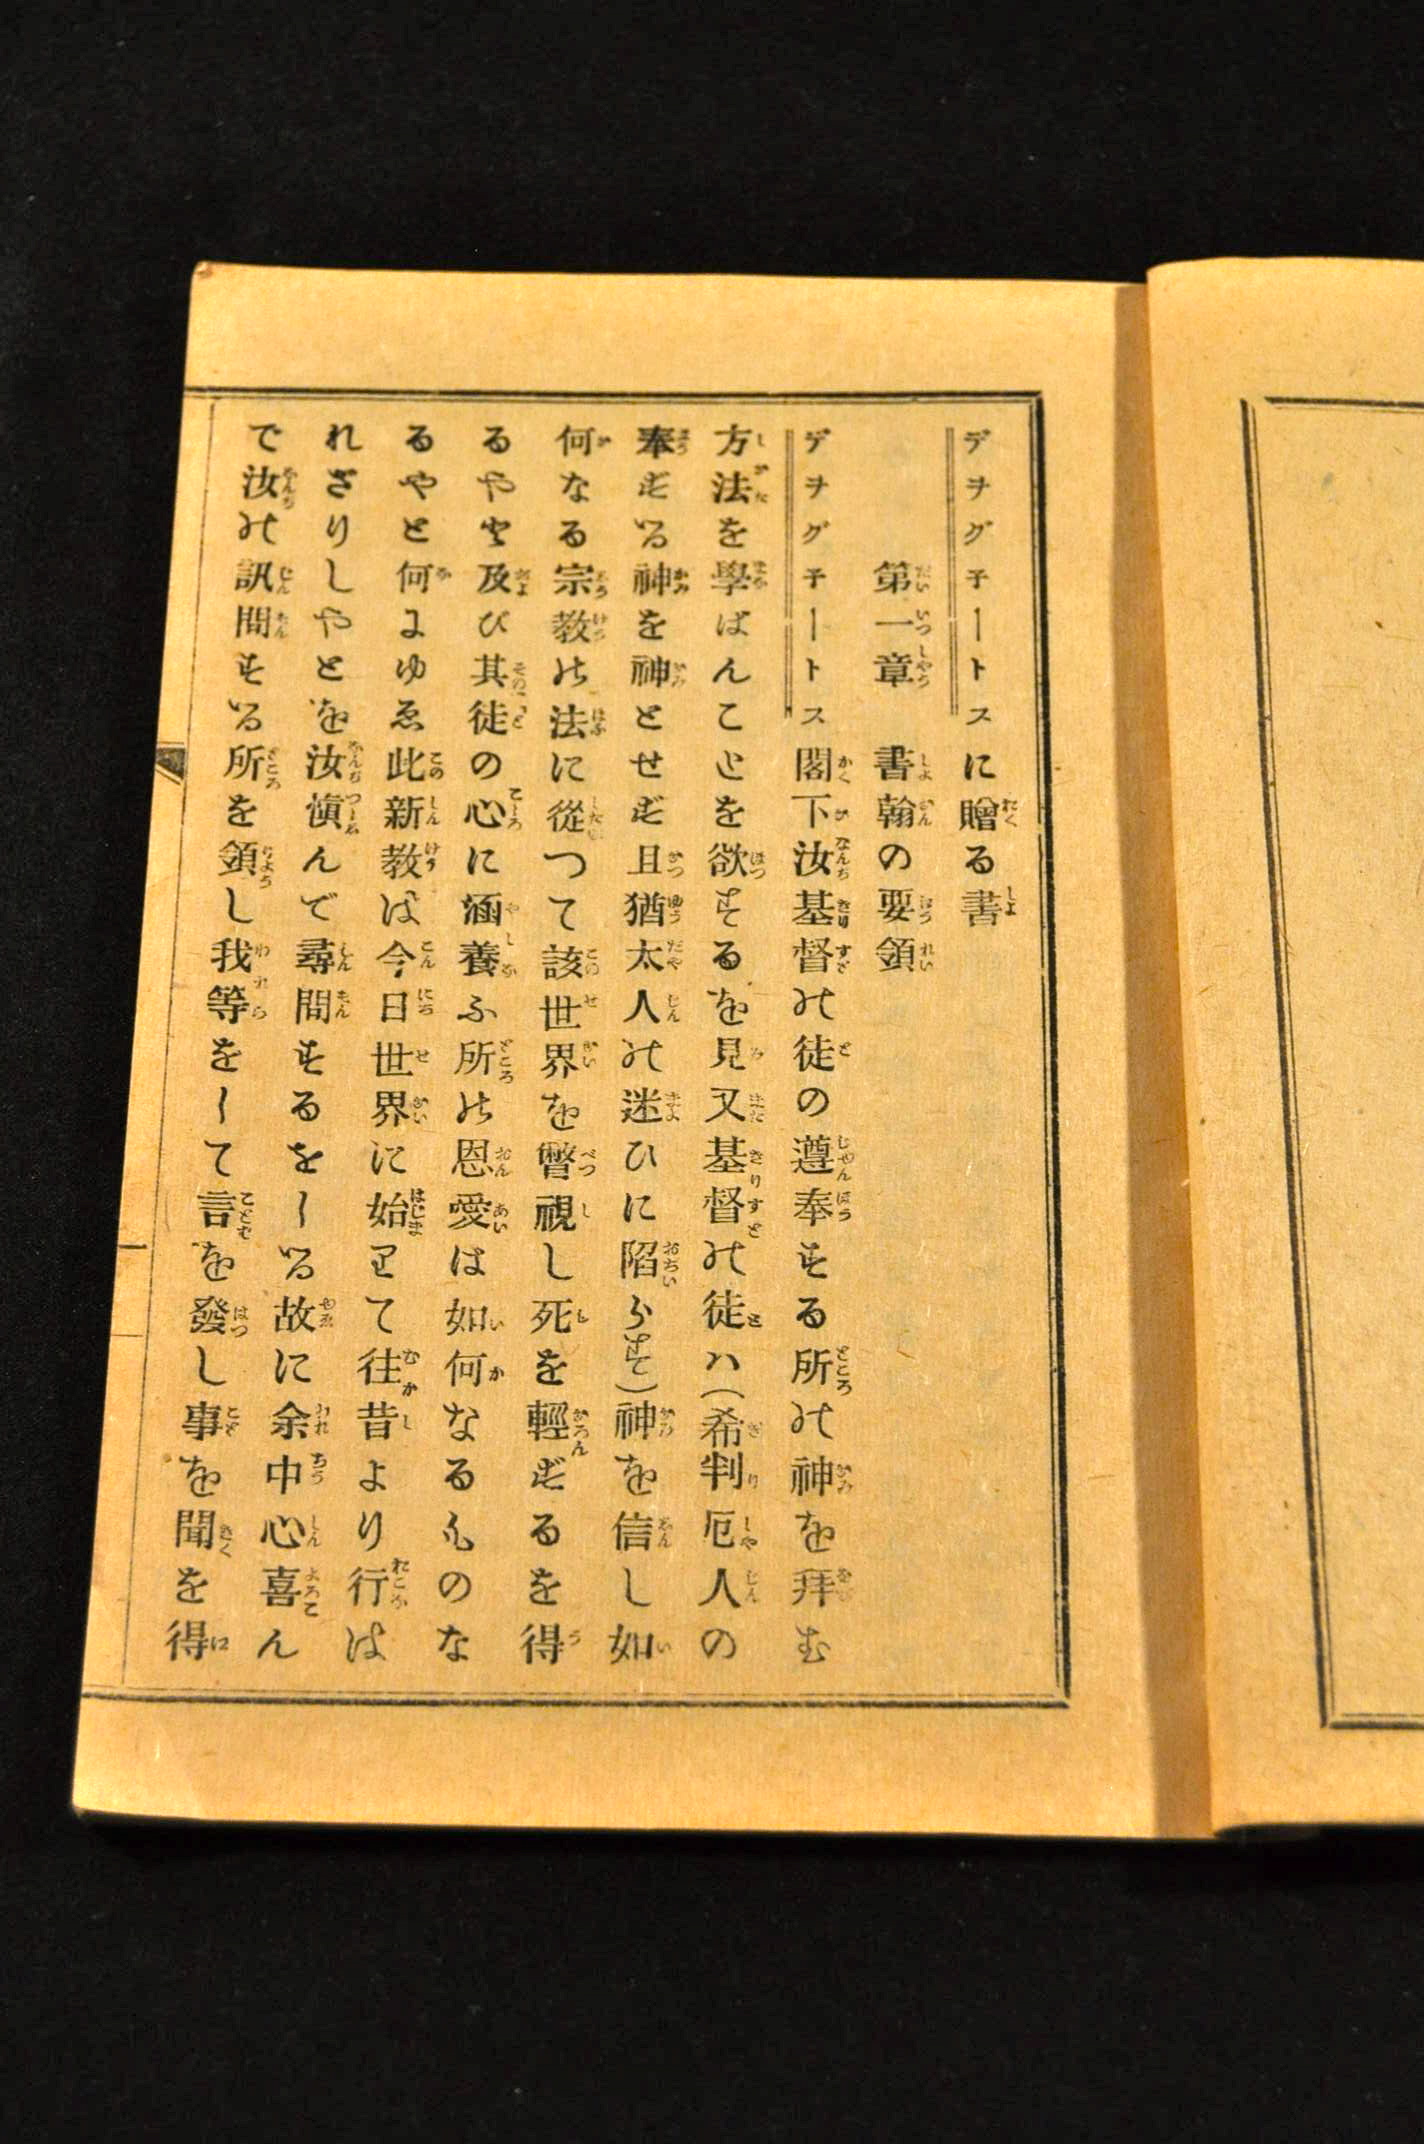 デヲグ子ートスに贈る書
第一章　書翰の要領
デヲグ子ートス閣下汝基督の徒の遵奉する所の神を拜む
方法を學ばんことを欲するを見又基督の徒ハ(希判厄人の
奉ずる神を神とせず且猶太人の迷ひに陷らずて)神を信し如
何なる宗教の法に從つて該世界を瞥視し死を輕ずるを得
るやを及び其徒の心に涵養ふ所の恩愛は如何なるものな
るやと何にゆゑ此新教は今日世界に始りて往昔より行は
れざりしやとを汝愼んで尋問するをしる故に余中心喜ん
で汝の訊問する所を領し我等をして言を發し事を聞を得